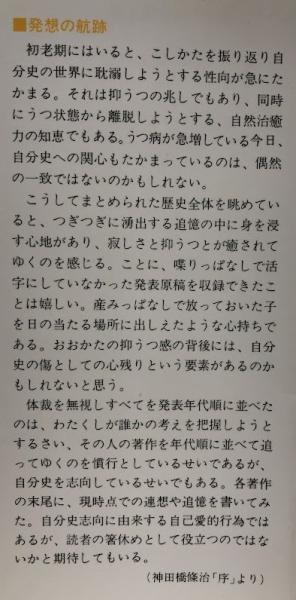 ■発想の航跡
　初老期にはいると、こしかたを振り返り自
分史の世界に耽溺しようとする性向が急にた
かまる。それは抑うつの兆しでもあり、同時
にうつ状態から離脱しようとする、自然治癒
力の知恵でもある。うつ病が急増している今日、
自分史への関心もたかまっているのは、偶然
の一致ではないのかもしれない。
　こうしてまとめられた歴史全体を眺めてい
ると、つぎつぎに湧出する追憶の中に身を浸
す心地があり、寂しさと抑うつとが癒されて
ゆくのを感じる。ことに、喋りっぱなしで活
字にしていなかった発表原稿を収録できたこ
とは嬉しい。産みっぱなしで放っておいた子
を日の当たる場所に出しえたような心持ちで
ある。おおかたの抑うつ感の背後には、自分
史の傷としての心残りという要素があるのか
もしれないと思う。
　体裁を無視しすべてを発表年代順に並べた
のは、わたくしが誰かの考えを把握しようと
するさい、その人の著作を年代順に並べて追
ってゆくのを慣行としているせいであるが、
自分史を志向しているせいでもある。各著作
の末尾に、現時点での連想や追憶を書いてみ
た。自分史志向に由来する自己愛的行為では
あるが、読者の箸休めとして役立つのではな
いかと期待してもいる。
（神田橋條治「序」より）